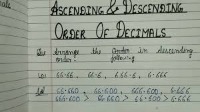 Ascending & Descending
Order Of Decimals
Arrange the Order in descending
order. following
66.66, 66.6, 666.6, 6.666
Sol 66.660, 66.600, 666.600, 6.666
666.600 > 66.660 > 66.600 > 6.666